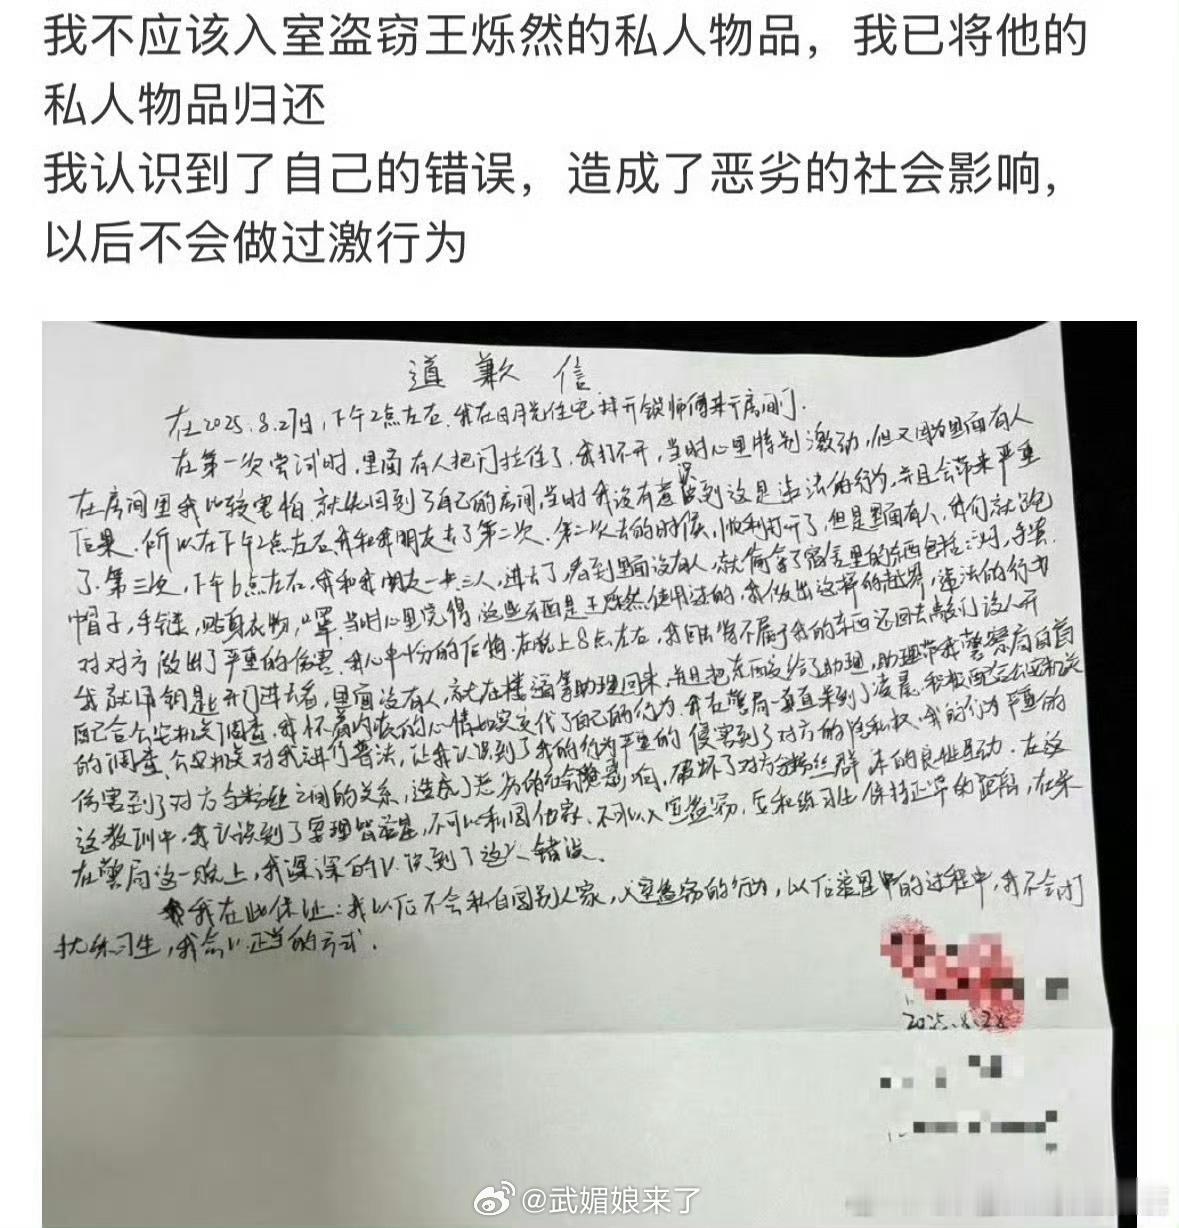 我不应该入室盗窃王烁然的私人物品，我已将他的
私人物品归还
我认识到了自己的错误，造成了恶劣的社会影响，
以后不会做过激行为
道歉信
在2025.8.27日，下午2点左右，我在日月光住宅找开锁师傅来开房间门.
在第一次尝试时，里面有人把门拉住了，我打不开，当时心里特别激动，但又因为里面有人
在房间里我比较害怕，就先回到了自己的房间，当时我没有意识到这是违法的行为，并且会带来严重
后果，所以在下午2点左右，我和我朋友去了第二次，第二次去的时候，顺利打开了，但是里面有人，我们就跑
了，第三次，下午6点左右，我和我朋友一共三人，进去了，看到里面没有人，就偷拿了宿舍里的东西包括：
帽子，手链，贴身衣物，口罩，当时心里觉得这些东西是王烁然使用过的，我做出这样的越界，违法的行为
对对方做出了严重的伤害，我心中十分的后悔，在晚上8点左右，我回去将不属于我的东西还回去敲门没人开
我就用钥匙开门进去看，里面没有人，就在楼道等助理回来，并且把东西交给了助理，助理带我警察局自首
配合公安机关调查，我怀着内疚的心情如实交代了自己的行为，我在警局一直呆到了凌晨，积极配合公安机关
的调查，公安机关对我进行普法，让我认识到了我的行为严重的侵害到了对方的隐私权，我的行为严重的
伤害到了对方与粉丝之间的关系，造成了恶劣的社会影响，破坏了对方与粉丝群体的良性互动，在这
这教训中，我认识到了要理智追星，不可以私闯他家，不可以入室盗窃，应和练习生保持正常的距离，在呆
在警局这一晚上，我深深的认识到了这个错误。
我在此保证：我以后不会私自闯别人家，入室盗窃的行为，以后追星中的过程中，我不会打
扰练习生，我会以正当的方式.
2025.8.28
@武媚娘来了